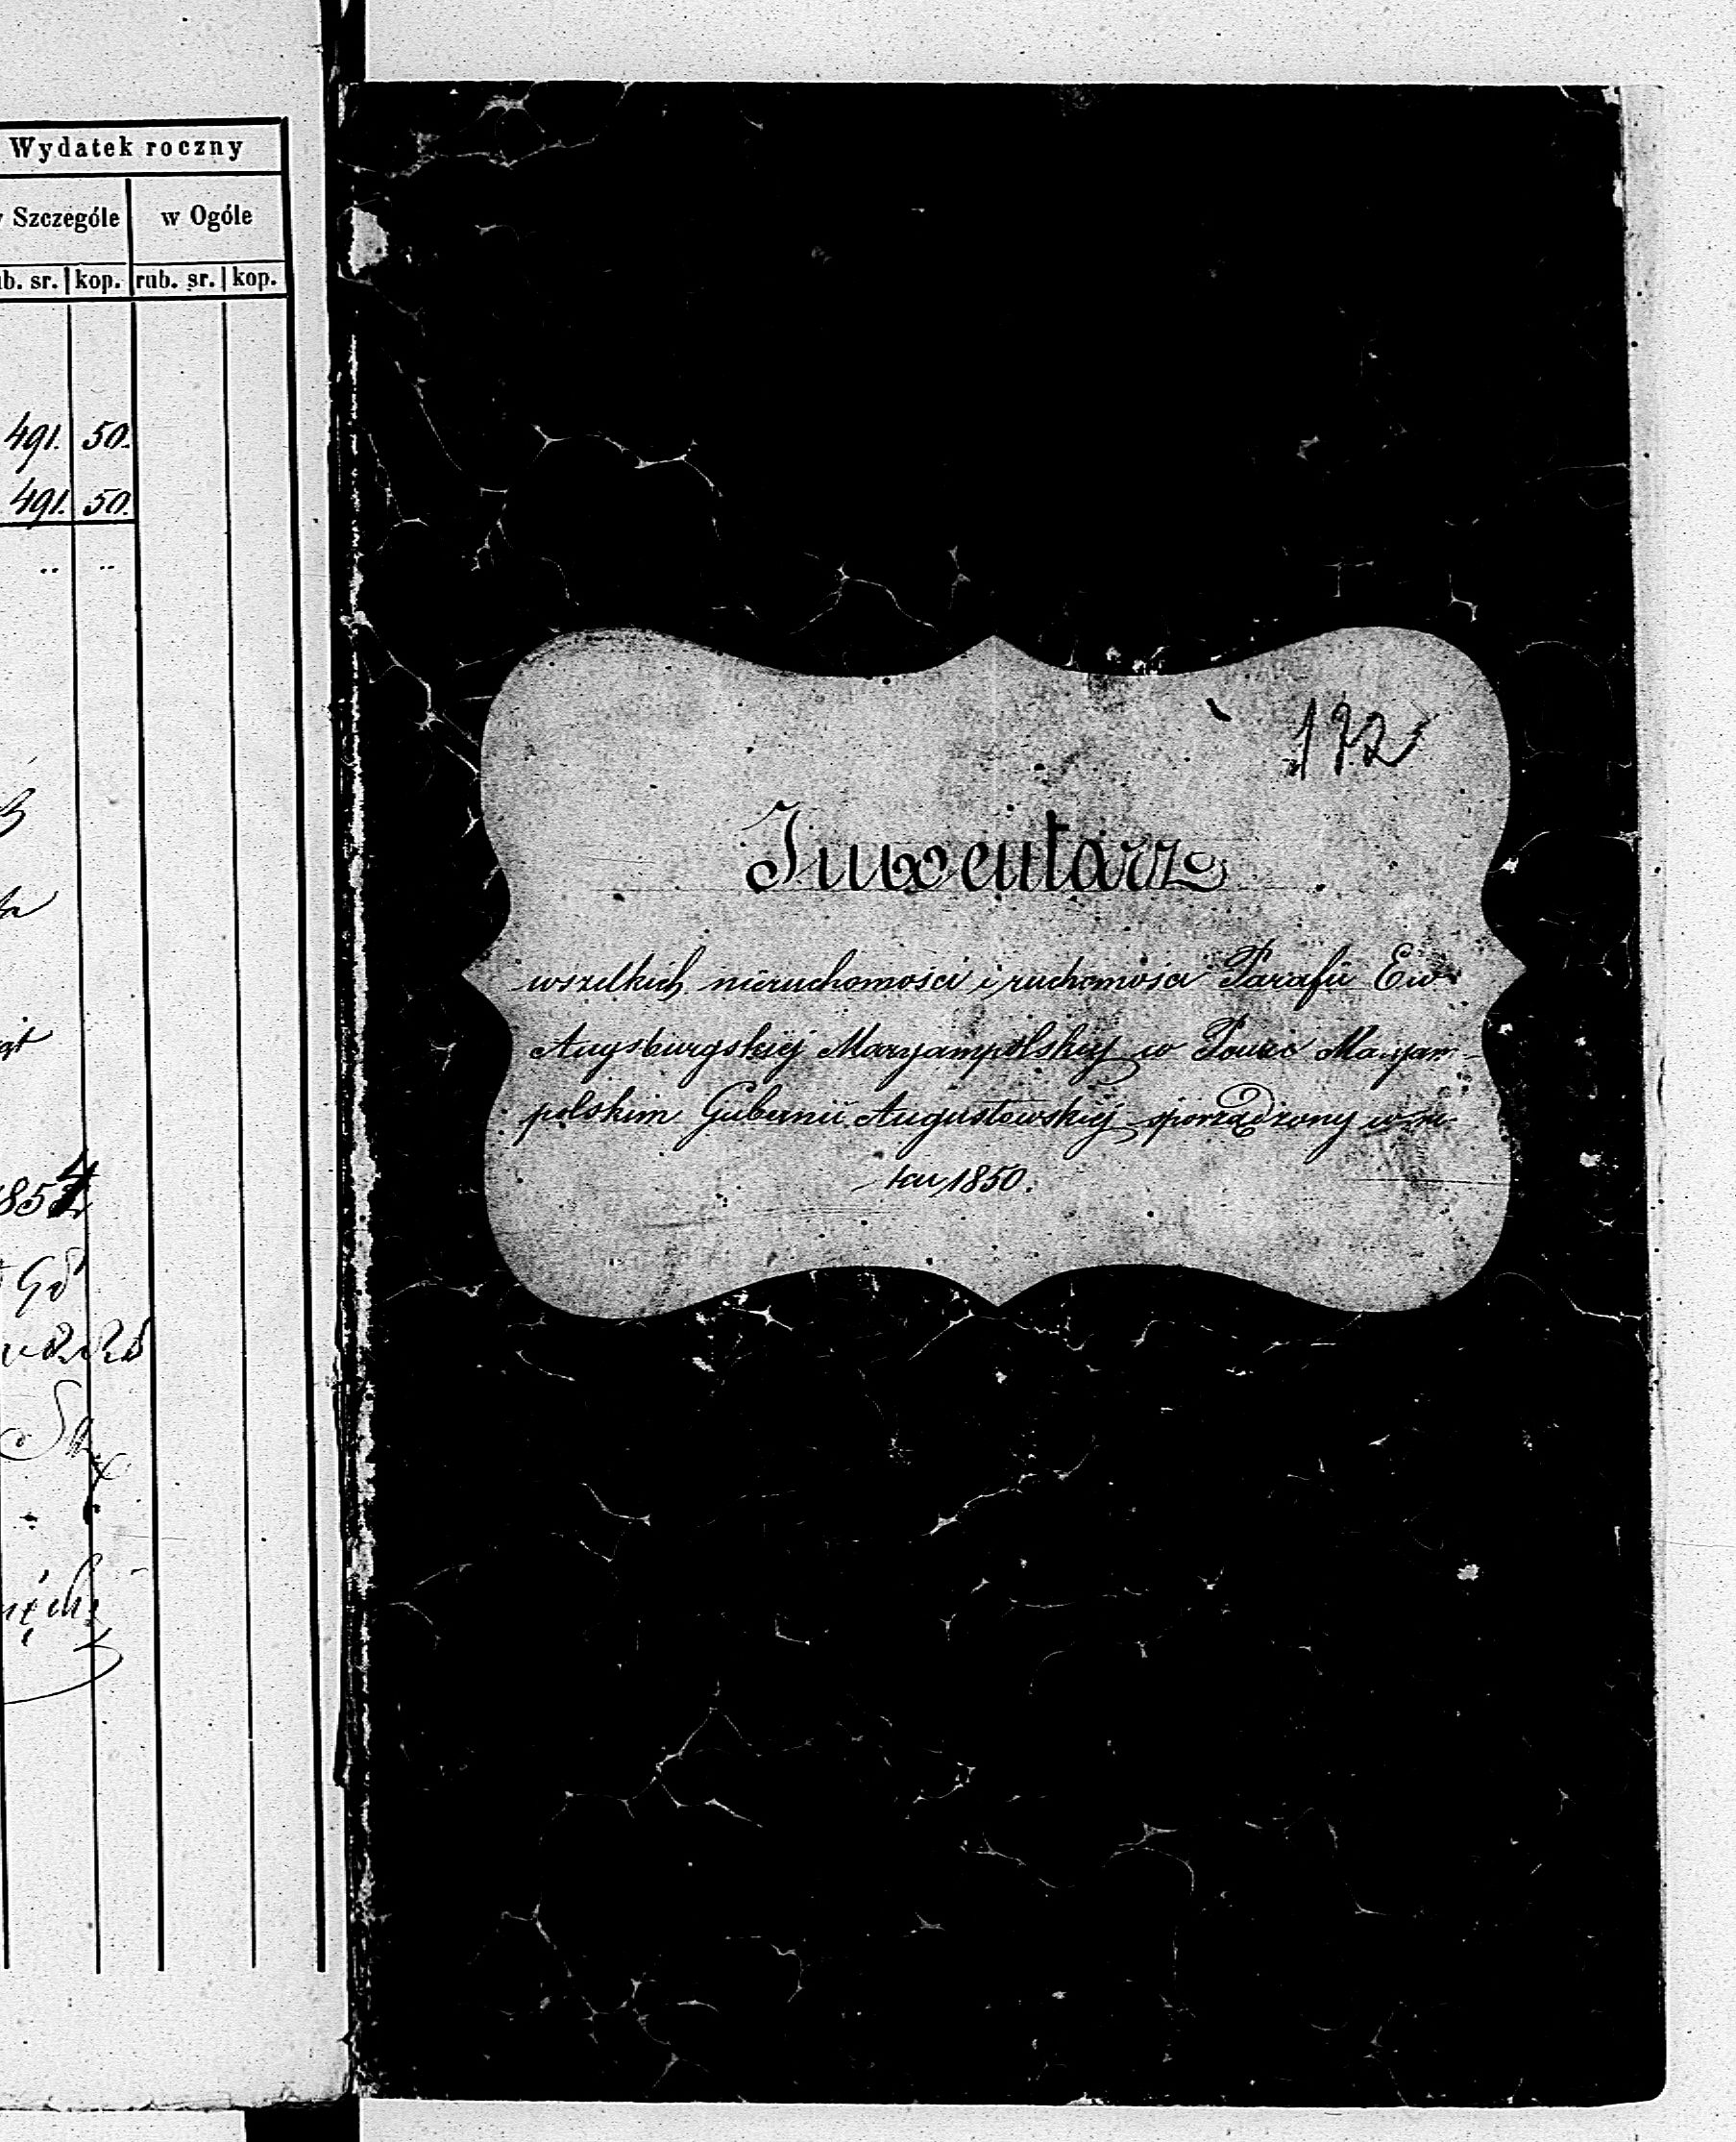 Wydatek roczny
Szczególe w Ogóle
rub. sr. kop. rub. sr. kop.
491. 50.
491. 50.
1854
172
Inwentarz
wszelkich nieruchomości i ruchomości Parafii Ew
Augsburgskiej Maryampolskiej w Powie Maryam-
polskim Gubernii Augustowskiej sporządzony w ro-
ku 1850.